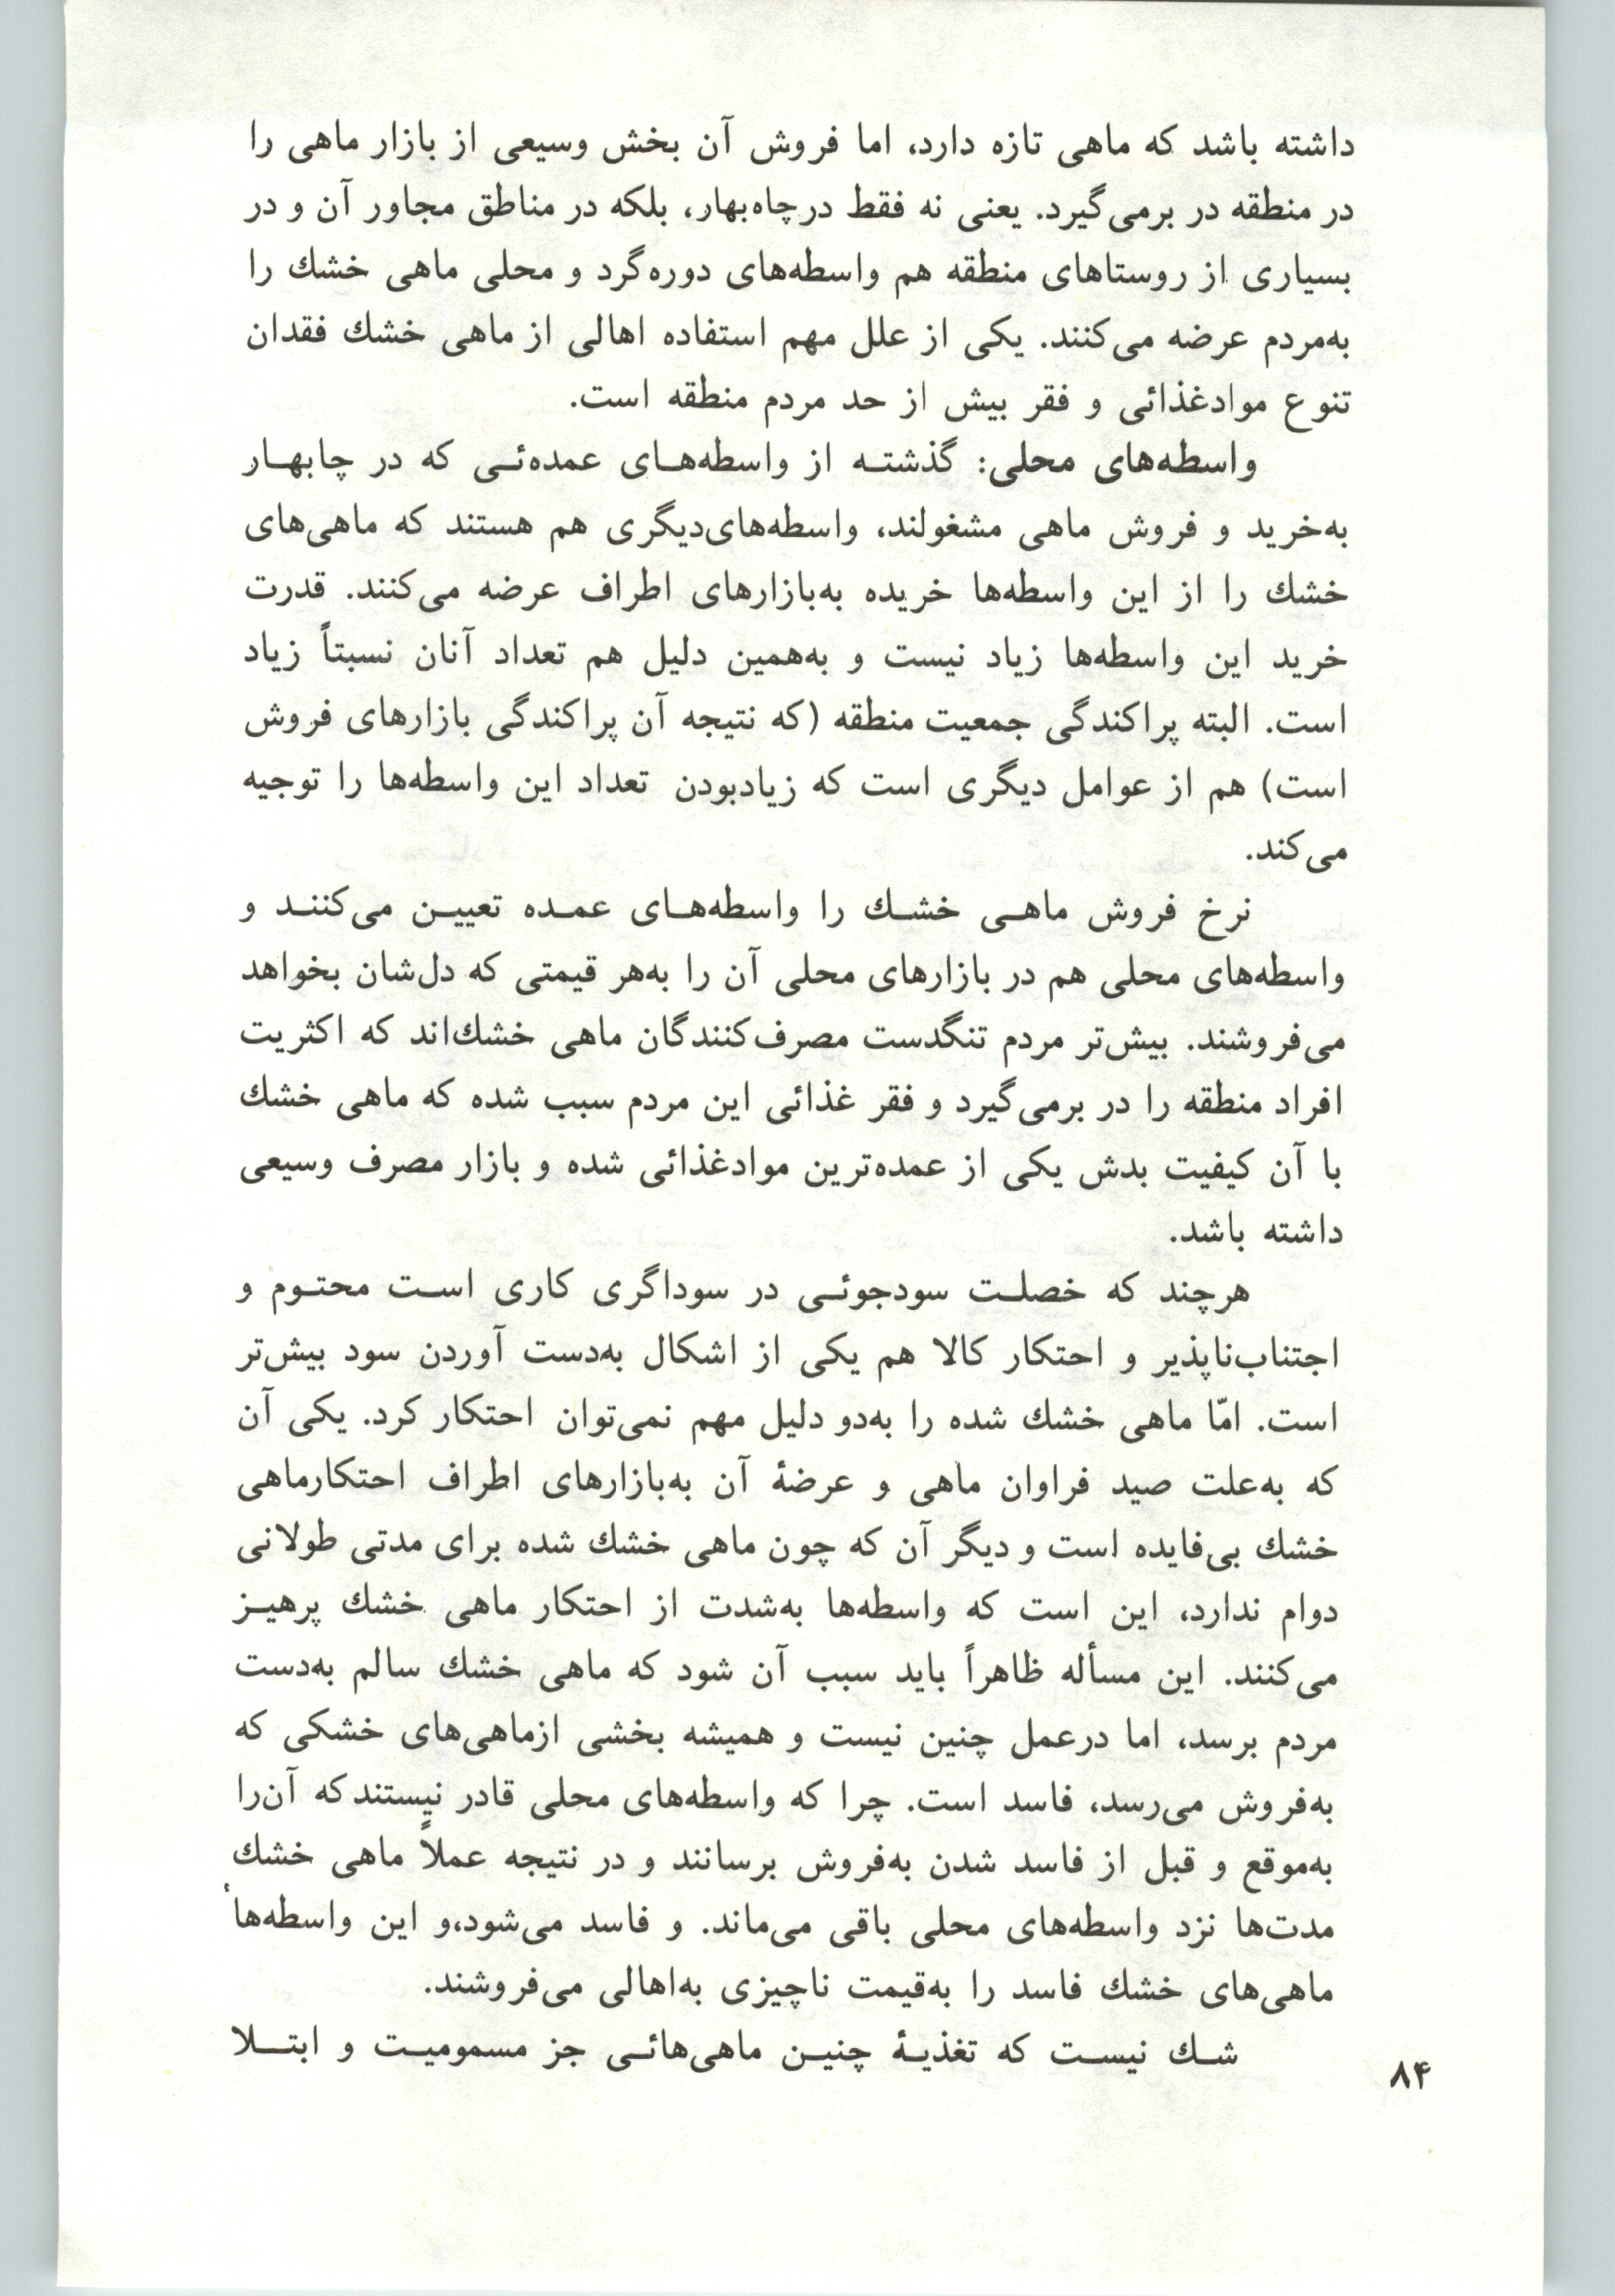 داشته باشد که ماهی تازه دارد، اما فروش آن بخش وسیعی از بازار ماهی را
در منطقه در برمی‌گیرد. یعنی نه فقط درچاه‌بهار، بلکه در مناطق مجاور آن و در
بسیاری از روستاهای منطقه هم واسطه‌های دوره‌گرد و محلی ماهی خشك را
به‌مردم عرضه می‌کنند. یکی از علل مهم استفاده اهالی از ماهی خشك فقدان
تنوع موادغذائی و فقر بیش از حد مردم منطقه است.
واسطه‌های محلی: گذشته از واسطه‌های عمده‌ئی که در چابهار
به‌خرید و فروش ماهی مشغولند، واسطه‌های‌دیگری هم هستند که ماهی‌های
خشك را از این واسطه‌ها خریده به‌بازارهای اطراف عرضه می‌کنند. قدرت
خرید این واسطه‌ها زیاد نیست و به‌همین دلیل هم تعداد آنان نسبتاً زیاد
است. البته پراکندگی جمعیت منطقه (که نتیجه آن پراکندگی بازارهای فروش
است) هم از عوامل دیگری است که زیادبودن تعداد این واسطه‌ها را توجیه
می‌کند.
نرخ فروش ماهی خشك را واسطه‌های عمده تعیین می‌کنند و
واسطه‌های محلی هم در بازارهای محلی آن را به‌هر قیمتی که دل‌شان بخواهد
می‌فروشند. بیش‌تر مردم تنگدست مصرف‌کنندگان ماهی خشك‌اند که اکثریت
افراد منطقه را در برمی‌گیرد و فقر غذائی این مردم سبب شده که ماهی خشك
با آن کیفیت بدش یکی از عمده‌ترین موادغذائی شده و بازار مصرف وسیعی
داشته باشد.
هرچند که خصلت سودجوئی در سوداگری کاری است محتوم و
اجتناب‌ناپذیر و احتکار کالا هم یکی از اشکال به‌دست آوردن سود بیش‌تر
است. امّا ماهی خشك شده را به‌دو دلیل مهم نمی‌توان احتکار کرد. یکی آن
که به‌علت صید فراوان ماهی و عرضهٔ آن به‌بازارهای اطراف احتکارماهی
خشك بی‌فایده است و دیگر آن که چون ماهی خشك شده برای مدتی طولانی
دوام ندارد، این است که واسطه‌ها به‌شدت از احتکار ماهی خشك پرهیز
می‌کنند. این مسأله ظاهراً باید سبب آن شود که ماهی خشك سالم به‌دست
مردم برسد، اما درعمل چنین نیست و همیشه بخشی ازماهی‌های خشکی که
به‌فروش می‌رسد، فاسد است. چرا که واسطه‌های محلی قادر نیستند که آن‌را
به‌موقع و قبل از فاسد شدن به‌فروش برسانند و در نتیجه عملاً ماهی خشك
مدت‌ها نزد واسطه‌های محلی باقی می‌ماند. و فاسد می‌شود،و این واسطه‌ها
ماهی‌های خشك فاسد را به‌قیمت ناچیزی به‌اهالی می‌فروشند.
شك نیست که تغذیهٔ چنین ماهی‌هائی جز مسمومیت و ابتلا
۸۴